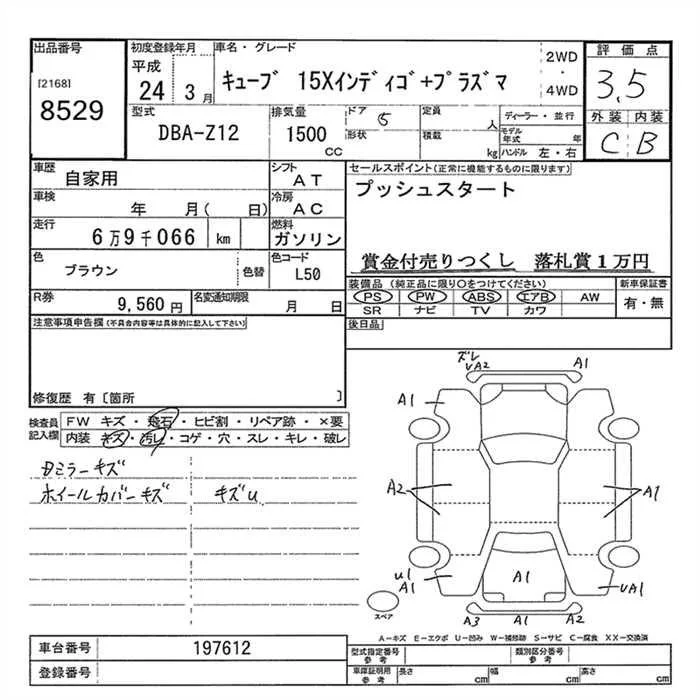 出品番号
[2168]
8529
初度登録年月
平成
24 3月
車名・グレード
キューブ 15Xインディゴ+プラズマ
2WD
・
4WD
評価点
3.5
外装 内装
C B
型式
DBA-Z12
排気量
1500
CC
ドア 5
形状
定員
人
積載
kg
ディーラー・並行
モデル年式 年
ハンドル 左・右
車歴
自家用
シフト
AT
車検
年 月( 日)
冷房
AC
走行
6万9千066 km
燃料
ガソリン
色
ブラウン
色替
色コード
L50
R券
9,560 円
名変通知期限
月 日
セールスポイント(正常に機能するものに限ります)
プッシュスタート
賞金付売りつくし 落札賞1万円
装備品 (純正品に限り○をつけてください)
PS PW ABS エアB AW
SR ナビ TV カワ
新車保証書
有・無
後日品
注意事項申告欄(不具合内容等は具体的に記入して下さい)
修復歴 有〔箇所 〕
検査員記入欄
FW キズ・飛石・ヒビ割・リペア跡・×要
内装 キズ・汚レ・コゲ・穴・スレ・キレ・破レ
ミラーキズ
ホイールカバーキズ キズu
ズレ
UA2
A1
A1
A1
A2
A1
U1
A1
A1
UA1
A3
A1
A2
スペア
A-キズ E-エクボ U-凹み W-補修跡 S-サビ C-腐食 XX-交換済
車台番号
197612
登録番号
型式指定番号
参考
類別区分番号
参考
車庫証明用
参考
長さ cm
幅 cm
高さ cm